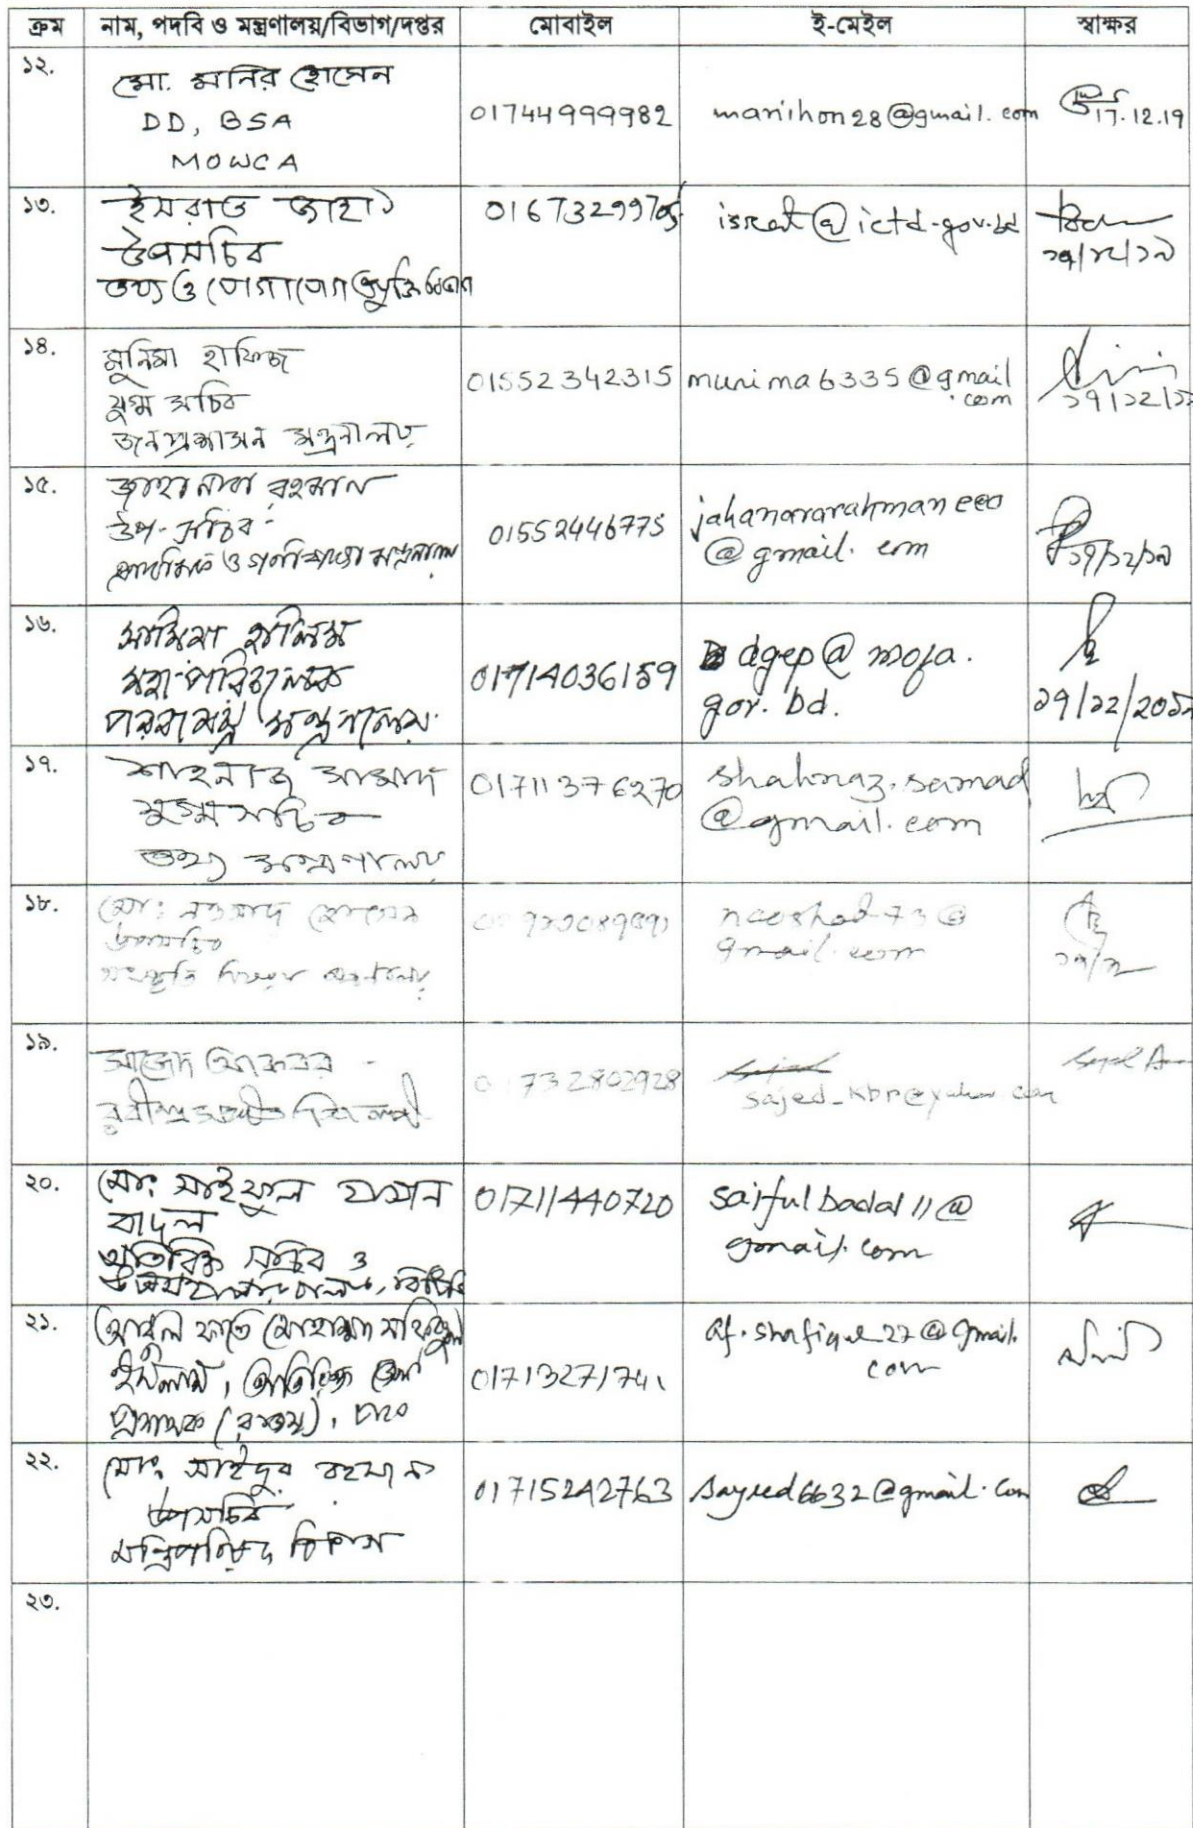 ক্রম নাম, পদবি ও মন্ত্রণালয়/বিভাগ/দপ্তর মোবাইল ই-মেইল স্বাক্ষর
১২.
মো. মনির হোসেন
DD, BSA
MOWCA
01744999982
manihon28@gmail.com
17.12.19
১৩.
ইসরাত জাহান
উপসচিব
তথ্য ও যোগাযোগ প্রযুক্তি বিভাগ
israt@ictd.gov.bd
১৪.
মুনিমা হাফিজ
যুগ্ম সচিব
জনপ্রশাসন মন্ত্রনালয়
01552342315
munima6335@gmail
.com
১৫.
জাহানারা রহমান
উপ-সচিব
প্রাথমিক ও গণশিক্ষা মন্ত্রণালয়
01552446775
jahanararahman
@gmail.com
১৭/১২/১৯
১৬.
সামিনা হালিম
মহা-পরিচালক
পররাষ্ট্র মন্ত্রণালয়
01714036159
dgep@mofa.
gov.bd.
১৭/১২/২০১৯
১৭.
শাহনাজ সামাদ
যুগ্মসচিব
তথ্য মন্ত্রণালয়
01711376270
shahnaz.samad
@gmail.com
১৮.
মো: নওসাদ হোসেন
উপসচিব
সংস্কৃতি বিষয়ক মন্ত্রণালয়
gmail.com
১৯.
সাজেদ আকবর
রবীন্দ্রসঙ্গীত শিল্পী
01732802928
sajed_kbr@yahoo.com
২০.
মো: সাইফুল হাসান
বাদল
অতিরিক্ত সচিব ও
01711440720
saifulbadal11@
gmail.com
২১.
আবুল ফাতে মোহাম্মদ সফিকুল
ইসলাম, অতিরিক্ত জেলা
প্রশাসক (রাজস্ব), ঢাকা
01713271741
af.shafiqul27@gmail.
com
২২.
মো: সাইদুর রহমান
উপসচিব
মন্ত্রিপরিষদ বিভাগ
01715242763
sayeed6632@gmail.com
২৩.